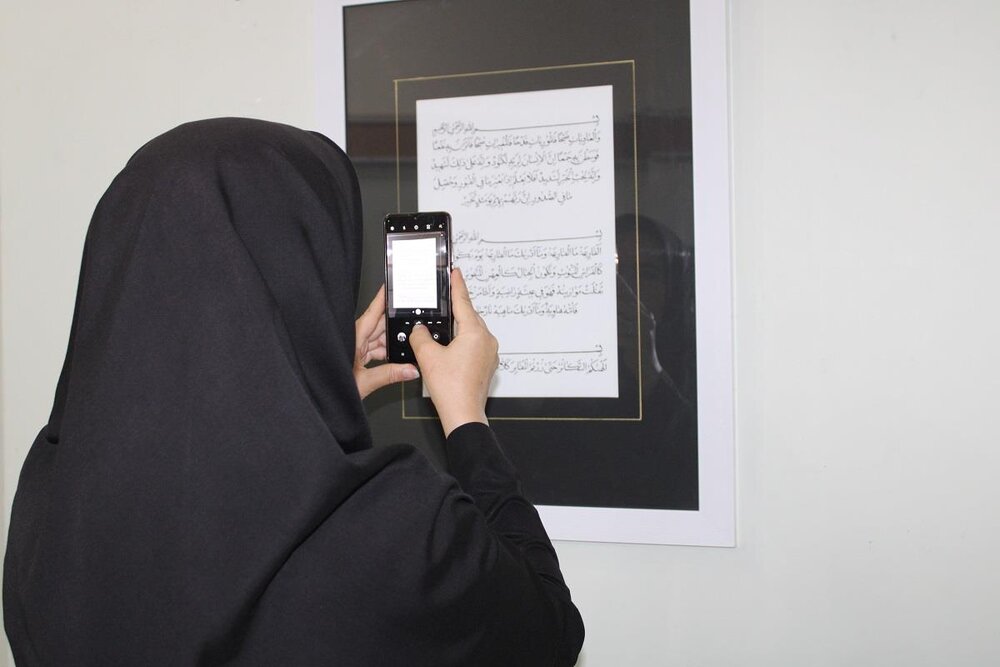 بِسْمِ اللهِ الرَّحْمٰنِ الرَّحِيمِ
وَالْعَادِيَاتِ ضَبْحًا فَالْمُورِيَاتِ قَدْحًا فَالْمُغِيرَاتِ صُبْحًا فَأَثَرْنَ بِهِ نَقْعًا
فَوَسَطْنَ بِهِ جَمْعًا إِنَّ الْإِنْسَانَ لِرَبِّهِ لَكَنُودٌ وَإِنَّهُ عَلَىٰ ذٰلِكَ لَشَهِيدٌ
وَإِنَّهُ لِحُبِّ الْخَيْرِ لَشَدِيدٌ أَفَلَا يَعْلَمُ إِذَا بُعْثِرَ مَا فِي الْقُبُورِ وَحُصِّلَ
مَا فِي الصُّدُورِ إِنَّ رَبَّهُمْ بِهِمْ يَوْمَئِذٍ لَخَبِيرٌ
بِسْمِ اللهِ الرَّحْمٰنِ
الْقَارِعَةُ مَا الْقَارِعَةُ وَمَا أَدْرَاكَ مَا الْقَارِعَةُ يَوْمَ يَكُونُ
كَالْفَرَاشِ الْمَبْثُوثِ وَتَكُونُ الْجِبَالُ كَالْعِهْنِ الْمَنْفُوشِ
ثَقُلَتْ مَوَازِينُهُ فَهُوَ فِي عِيشَةٍ رَاضِيَةٍ وَأَمَّا مَنْ
فَأُمُّهُ هَاوِيَةٌ وَمَا أَدْرَاكَ مَا هِيَهْ نَارٌ
بِسْمِ
أَلْهَاكُمُ التَّكَاثُرُ حَتَّىٰ زُرْتُمُ الْمَقَابِرَ كَلَّا